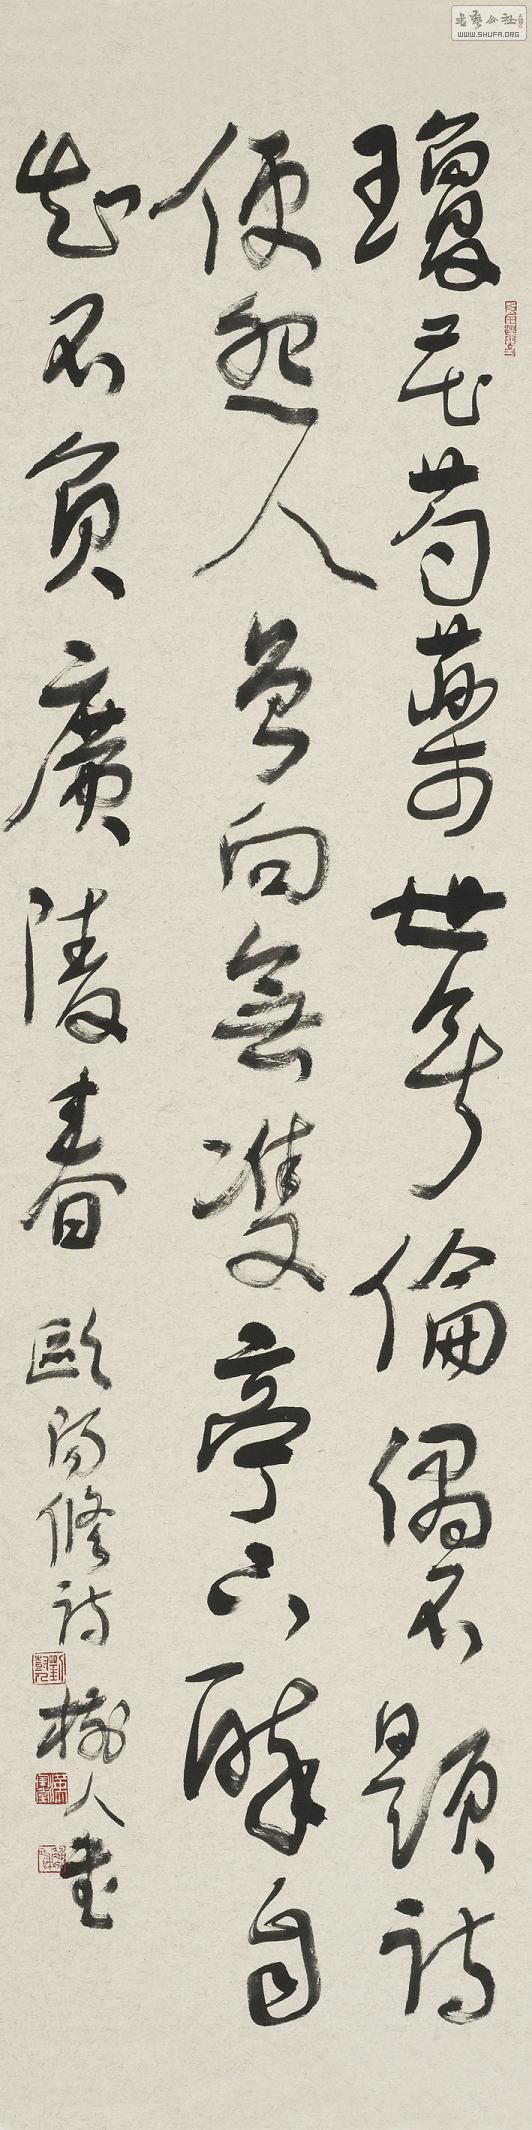 瓊花芍藥世無倫偶不題詩
便怨人曾向無雙亭下醉自
知不負廣陵春 歐陽修詩 樹人書
書藝公社
WWW.SHUFA.ORG